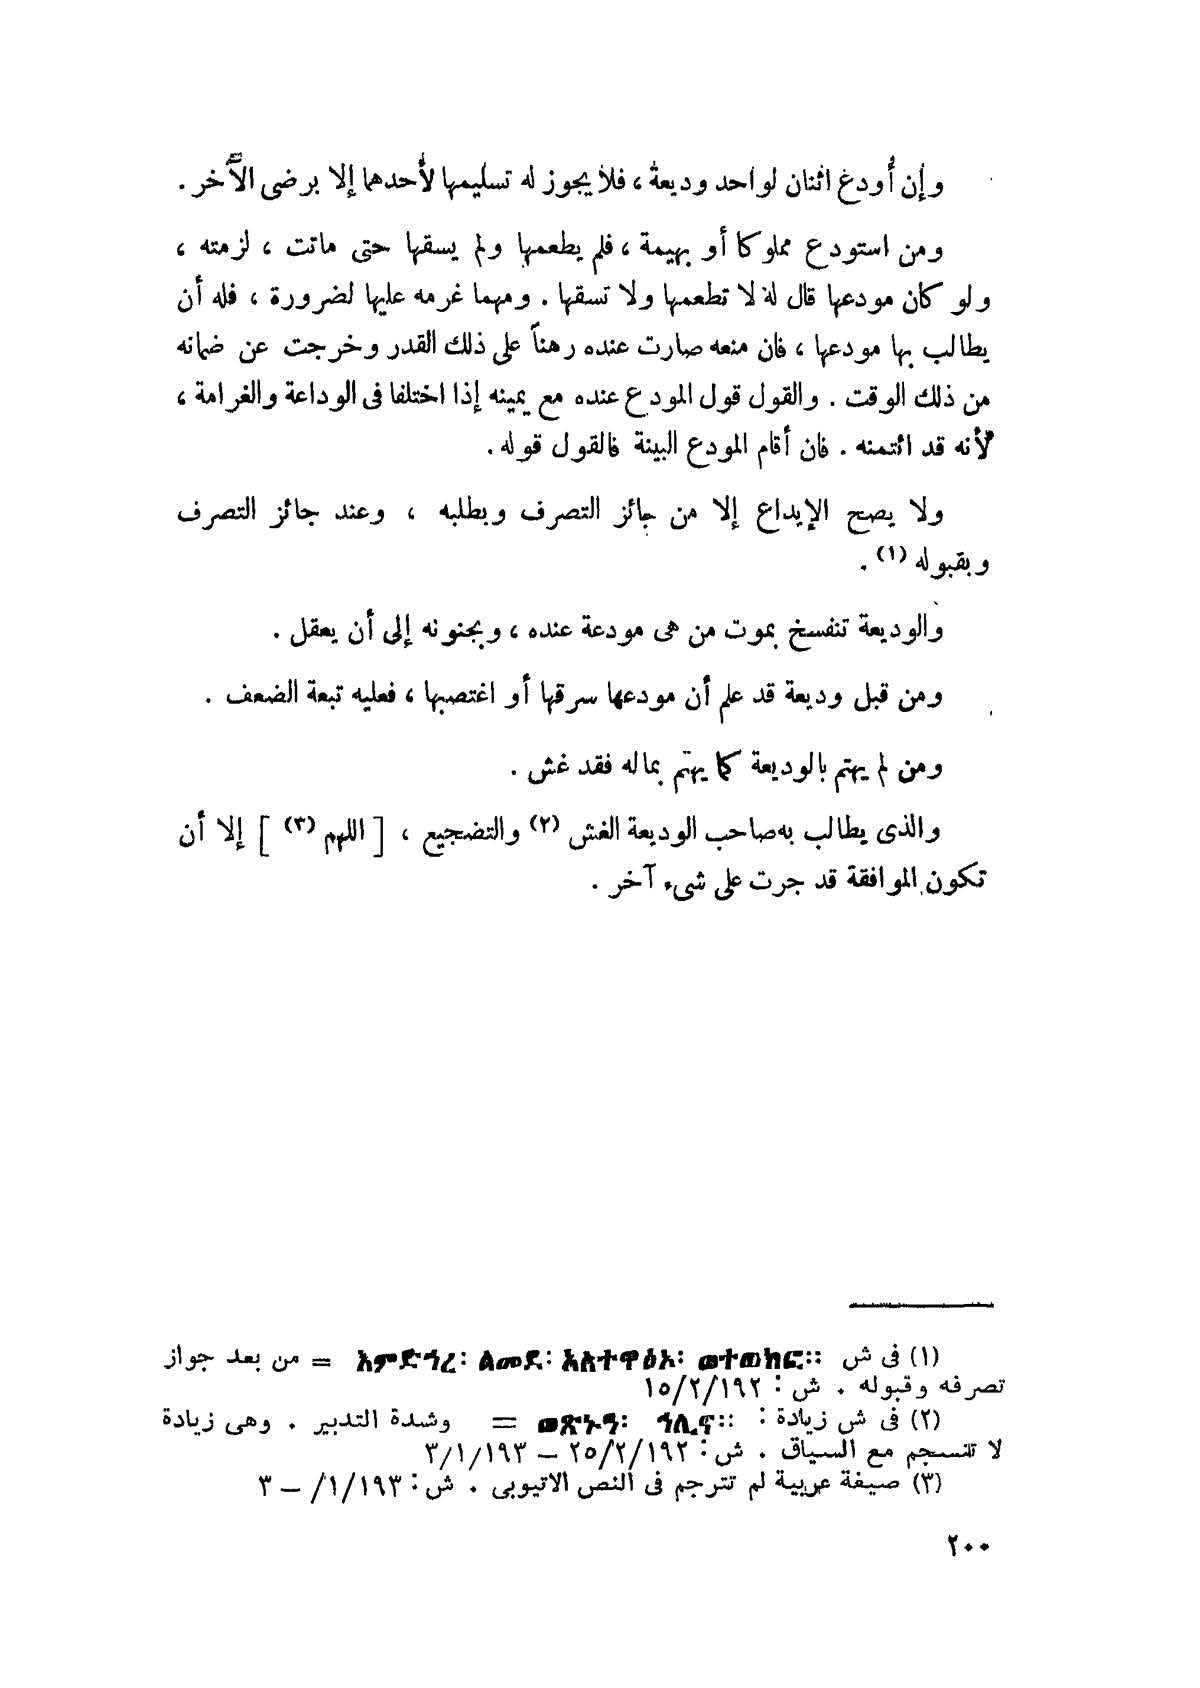 وإن أُودع اثنان لواحد وديعة ، فلا يجوز له تسليمها لأحدهما إلا برضى الآخر .
ومن استودع مملوكا أو بهيمة ، فلم يطعمها ولم يسقها حتى ماتت ، لزمته ،
ولو كان مودعها قال له لا تطعمها ولا تسقها . ومهما غرمه عليها لضرورة ، فله أن
يطالب بها مودعها ، فان منعه صارت عنده رهناً على ذلك القدر وخرجت عن ضمانه
من ذلك الوقت . والقول قول المودع عنده مع يمينه إذا اختلفا فى الوداعة والغرامة ،
لأنه قد ائتمنه . فان أقام المودع البينة فالقول قوله .
ولا يصح الإيداع إلا من جائز التصرف وبطلبه ، وعند جائز التصرف
وبقبوله (١) .
والوديعة تنفسخ بموت من هى مودعة عنده ، وبجنونه إلى أن يعقل .
ومن قبل وديعة قد علم أن مودعها سرقها أو اغتصبها ، فعليه تبعة الضعف .
ومن لم يهتم بالوديعة كما يهتم بماله فقد غش .
والذى يطالب به صاحب الوديعة الغش (٢) والتضجيع ، [ اللهم (٣) ] إلا أن
تكون الموافقة قد جرت على شىء آخر .
(١) فى ش እምድኅረ፡ ልመደ፡ ወተወክፎ፡፡ = من بعد جواز
تصرفه وقبوله . ش : ١٥/٢/١٩٢
(٢) فى ش زيادة : ወጽኑዓ፡ ኅሊና፡፡ = وشدة التدبير . وهى زيادة
لا تنسجم مع السياق . ش : ٢٥/٢/١٩٢ – ٣/١/١٩٣
(٣) صيغة عربية لم تترجم فى النص الاتيوبى . ش : ١/١٩٣/ – ٣
٢٠٠